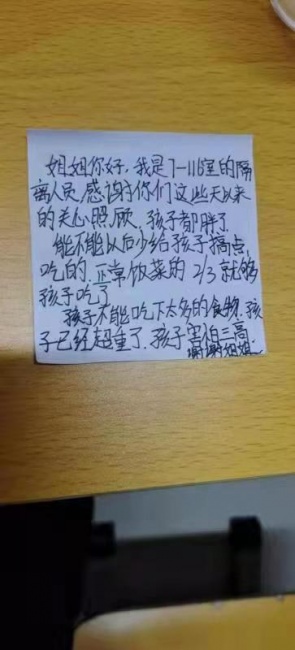 姐姐你好，我是7-116室的隔
离人员，感谢你们这些天以来
的关心照顾，孩子都胖了
能不能以后少给孩子搞点
吃的，正常饭菜的2/3就够
孩子吃了
孩子不能吃下太多的食物，孩
子已经超重了，孩子害怕三高，
谢谢姐姐~